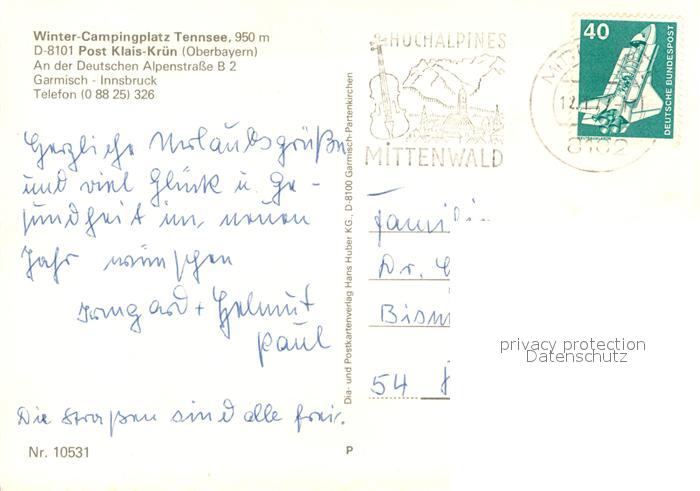 Winter-Campingplatz Tennsee, 950 m
D-8101 Post Klais-Krün (Oberbayern)
An der Deutschen Alpenstraße B 2
Garmisch - Innsbruck
Telefon (0 88 25) 326
Herzliche Urlaubsgrüße
und viel Glück u. Ge-
sundheit im neuen
Jahr wünschen
Irmgard + Helmut
Paul
Die Straßen sind alle frei.
Nr. 10531
Dia- und Postkartenverlag Hans Huber KG., D-8100 Garmisch-Partenkirchen
P
HOCHALPINES
MITTENWALD
8102
40
DEUTSCHE BUNDESPOST
Famili
Dr.
Bism
54
privacy protection
Datenschutz